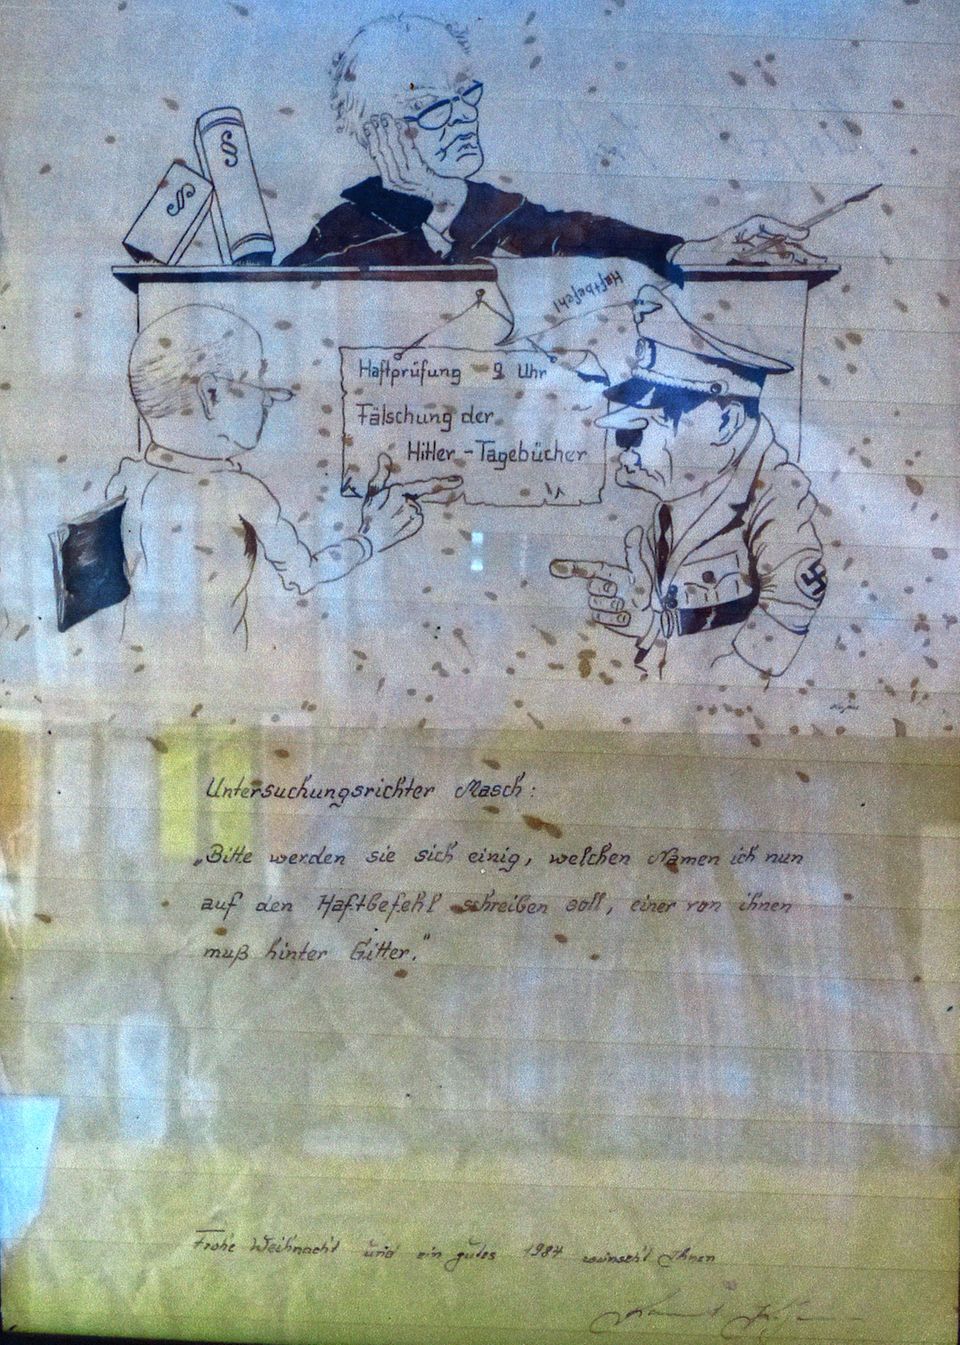 §
§
Haftbefehl
Haftprüfung 9 Uhr
Fälschung der
Hitler - Tagebücher
Untersuchungsrichter Masch:
„Bitte werden sie sich einig, welchen Namen ich nun
auf den Haftbefehl schreiben soll, einer von ihnen
muß hinter Gitter."
Frohe Weihnacht und ein gutes 1984 wünscht Ihnen